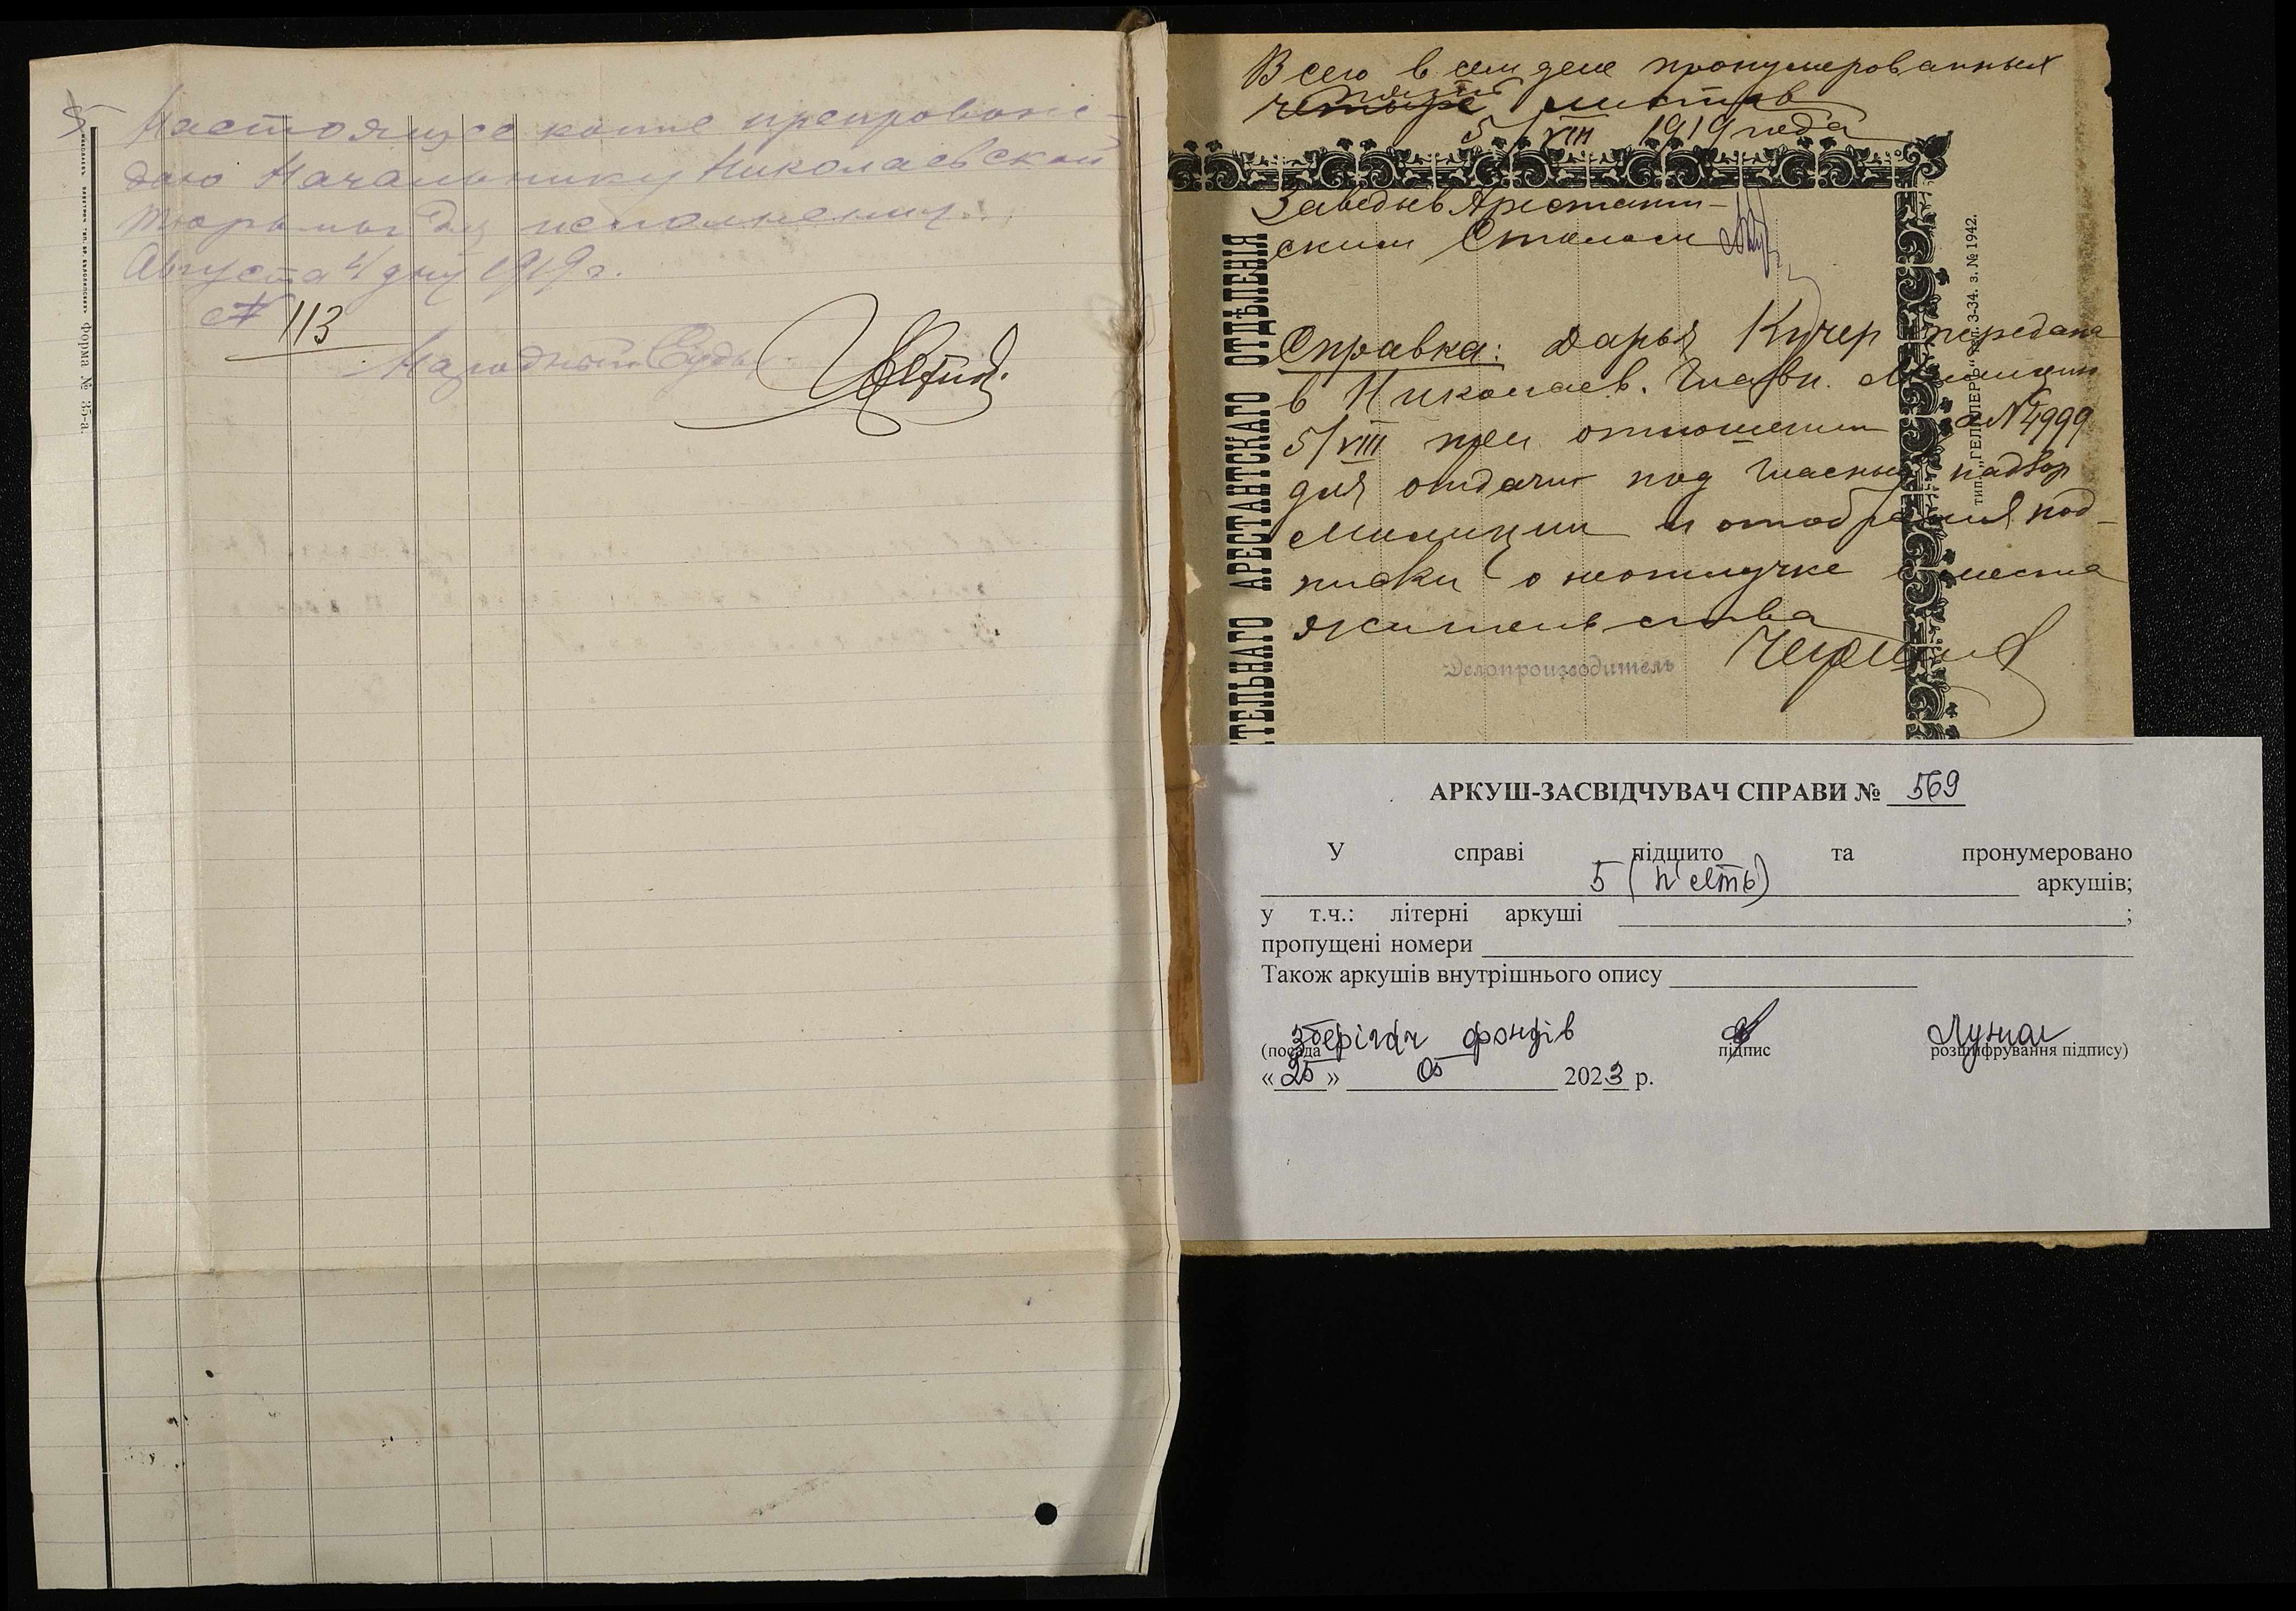 5
Настоящее копие препровож-
даю Начальнику Николаевской
тюрьмы для исполнения.
Августа 4 дня 1919 г.
№ 113
Народный Судья
Форма № 35-а.
Всего в сем деле пронумерованных
пять
четыре листов
5/VIII 1919 года
Заведыв Арестант-
ским Столом
ТЕЛЬНАГО АРЕСТАНТСКАГО ОТДѢЛЕНІЯ
Справка: Дарья Кучер передана
в Николаев. Главн. Милицию
5/VIII при отношении за № 4999
для отдачи под гласный надзор
Милиции и отобрания под-
писки о неотлучке с места
жительства
Делопроизводитель
тип. „ГЕЛЛЕРЪ“ 3-34. з. № 1942.
АРКУШ-ЗАСВІДЧУВАЧ СПРАВИ № 569
У справі підшито та пронумеровано
5 (п'ять) аркушів;
у т.ч.: літерні аркуші ;
пропущені номери
Також аркушів внутрішнього опису
зберігач фондів
(посада підпис розшифрування підпису)
« 25 » 05 2023 р.